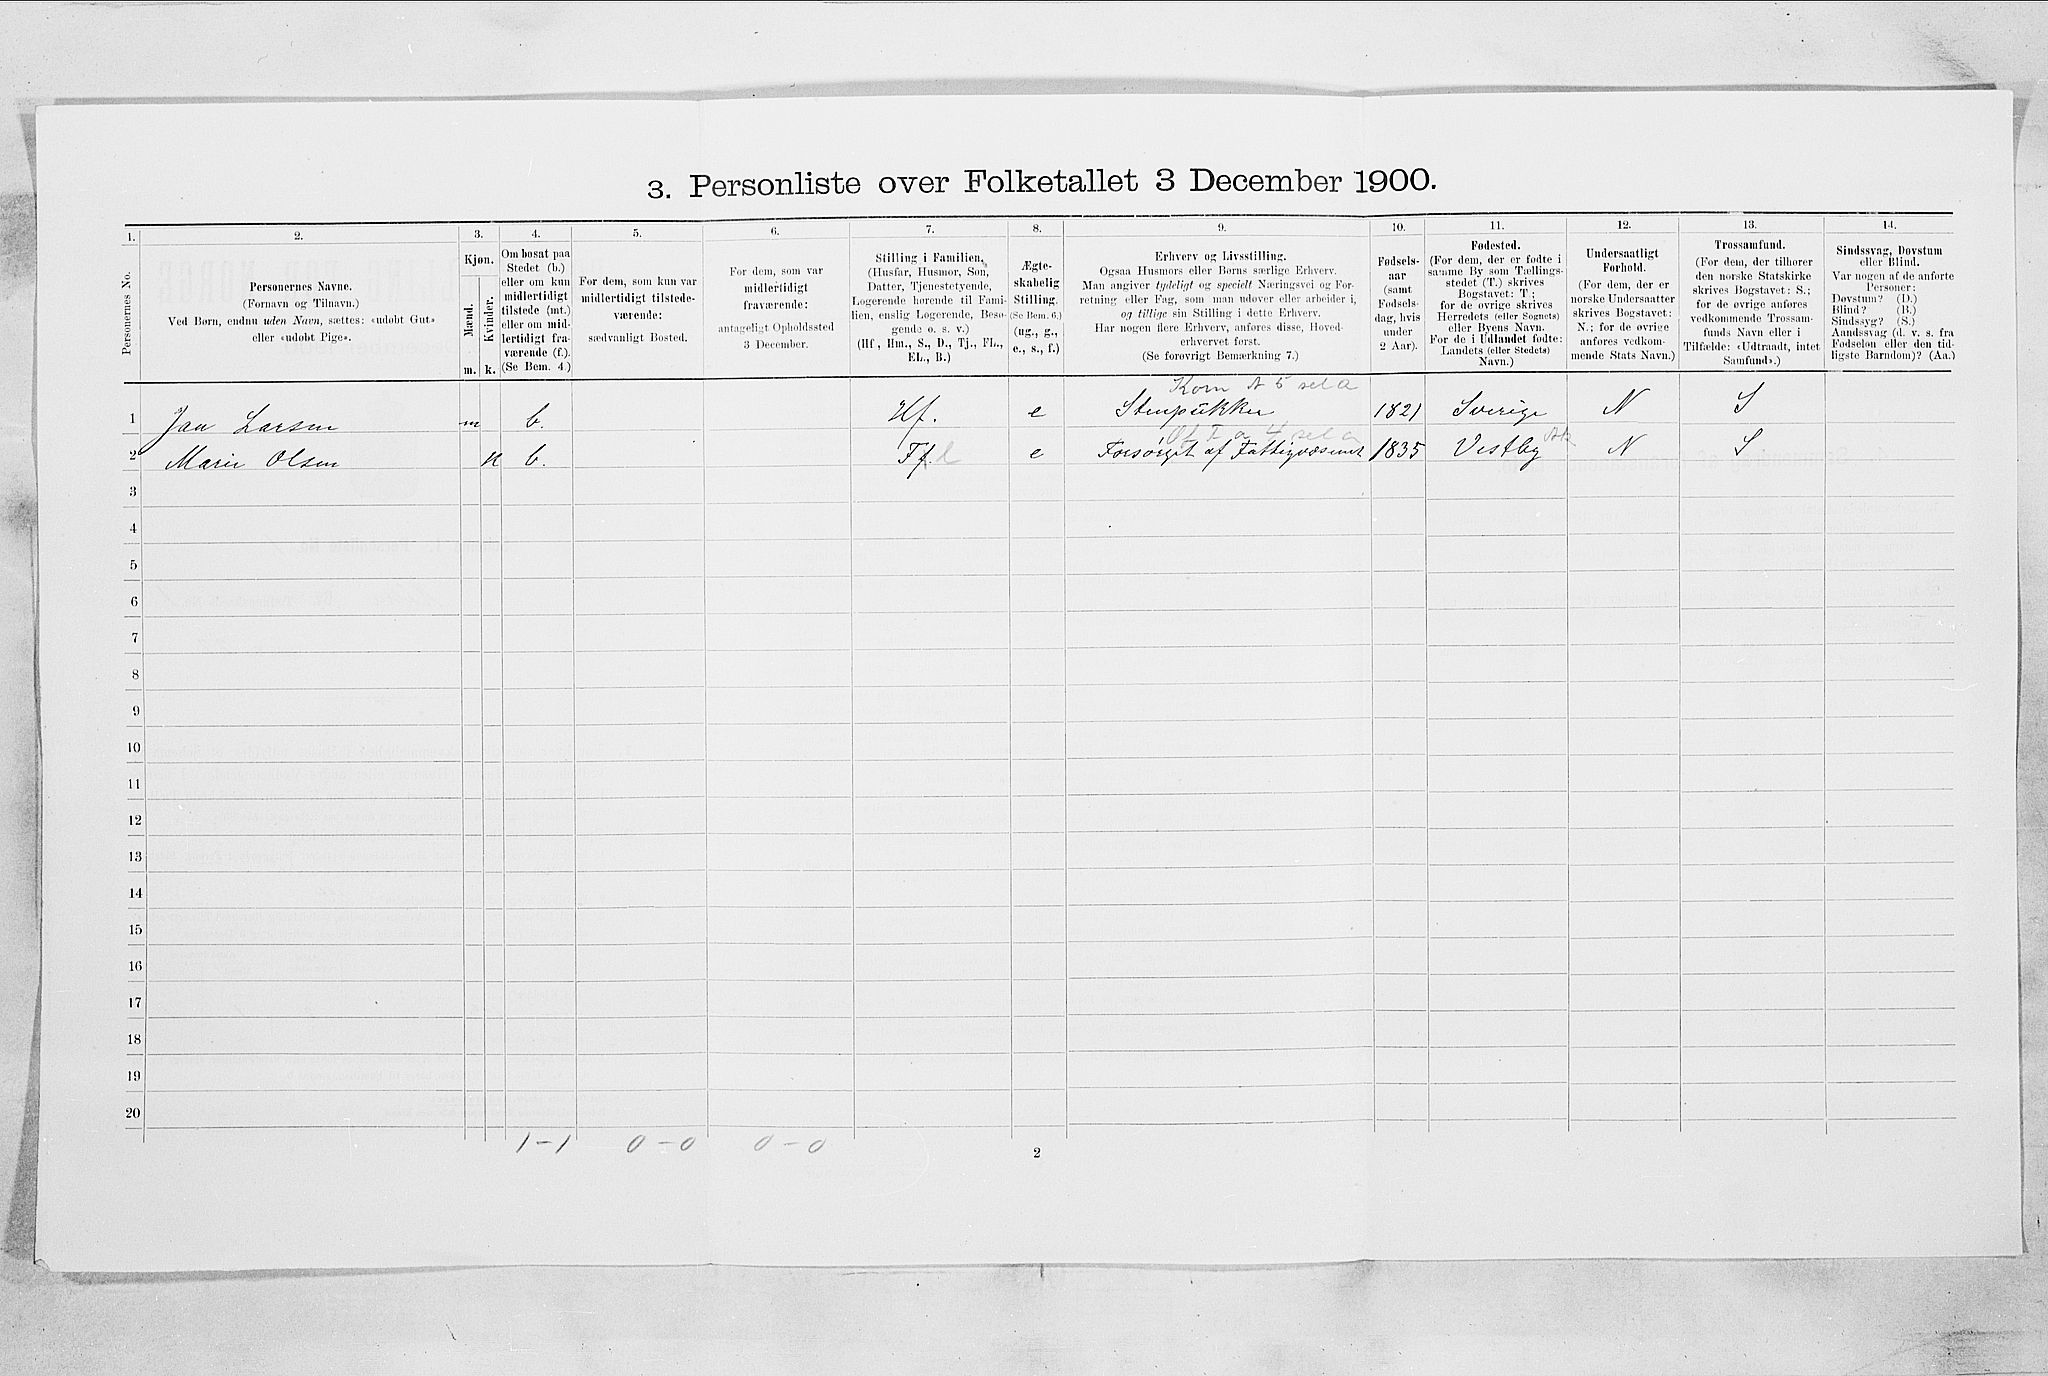 3. Personliste over Folketallet 3 December 1900.
1. 2. 3. 4. 5. 6. 7. 8. 9. 10. 11. 12. 13. 14.
Personernes No.
Personernes Navne.
(Fornavn og Tilnavn.)
Ved Børn, endnu uden Navn, sættes: «udøbt Gut»
eller «udøbt Pige».
Kjøn.
Mænd.
Kvinder.
m. k.
Om bosat paa
Stedet (b.)
eller om kun
midlertidigt
tilstede (mt.)
eller om mid-
lertidigt fra-
værende (f.).
(Se Bem. 4.)
For dem, som kun var
midlertidigt tilstede-
værende:
sædvanligt Bosted.
For dem, som var
midlertidigt
fraværende:
antageligt Opholdssted
3 December.
Stilling i Familien.
(Husfar, Husmor, Søn,
Datter, Tjenestetyende,
Logerende hørende til Fami-
lien, enslig Logerende, Besø-
gende o. s. v.)
(Hf., Hm., S., D., Tj., FL.,
EL., B.)
Ægte-
skabelig
Stilling.
(Se Bem. 6.)
(ug., g.,
e., s., f.)
Erhverv og Livsstilling.
Ogsaa Husmors eller Børns særlige Erhverv.
Man angiver tydeligt og specielt Næringsvei og For-
retning eller Fag, som man udøver eller arbeider i,
og tillige sin Stilling i dette Erhverv.
Har nogen flere Erhverv, anføres disse, Hoved-
erhvervet først.
(Se forøvrigt Bemærkning 7.)
Fødsels-
aar
(samt
Fødsels-
dag, hvis
under
2 Aar).
Fødested.
(For dem, der er fødte i
samme By som Tællings-
stedet (T.) skrives
Bogstavet: T.;
for de øvrige skrives
Herredets (eller Sognets)
eller Byens Navn.
For de i Udlandet fødte:
Landets (eller Stedets)
Navn.)
Undersaatligt
Forhold.
(For dem, der er
norske Undersaatter
skrives Bogstavet:
N.; for de øvrige
anføres vedkom-
mende Stats Navn.)
Trossamfund.
(For dem, der tilhører
den norske Statskirke
skrives Bogstavet: S.;
for de øvrige anføres
vedkommende Trossam-
funds Navn eller i
Tilfælde: «Udtraadt, intet
Samfund».)
Sindssvag, Døvstum
eller Blind.
Var nogen af de anførte
Personer:
Døvstum? (D.)
Blind? (B.)
Sindssyg? (S.)
Aandssvag (d. v. s. fra
Fødselen eller den tid-
ligste Barndom)? (Aa.)
Kom A 5 sel a
1 Jan Larsen m b. Hf. e Stenpukker 1821 Sverige N S
4 sel a
2 Marie Olsen k b. e Forsørget af Fattigvæsenet 1835 Vestby N S
3
4
5
6
7
8
9
10
11
12
13
14
15
16
17
18
19
20
1-1 0-0 0-0
2